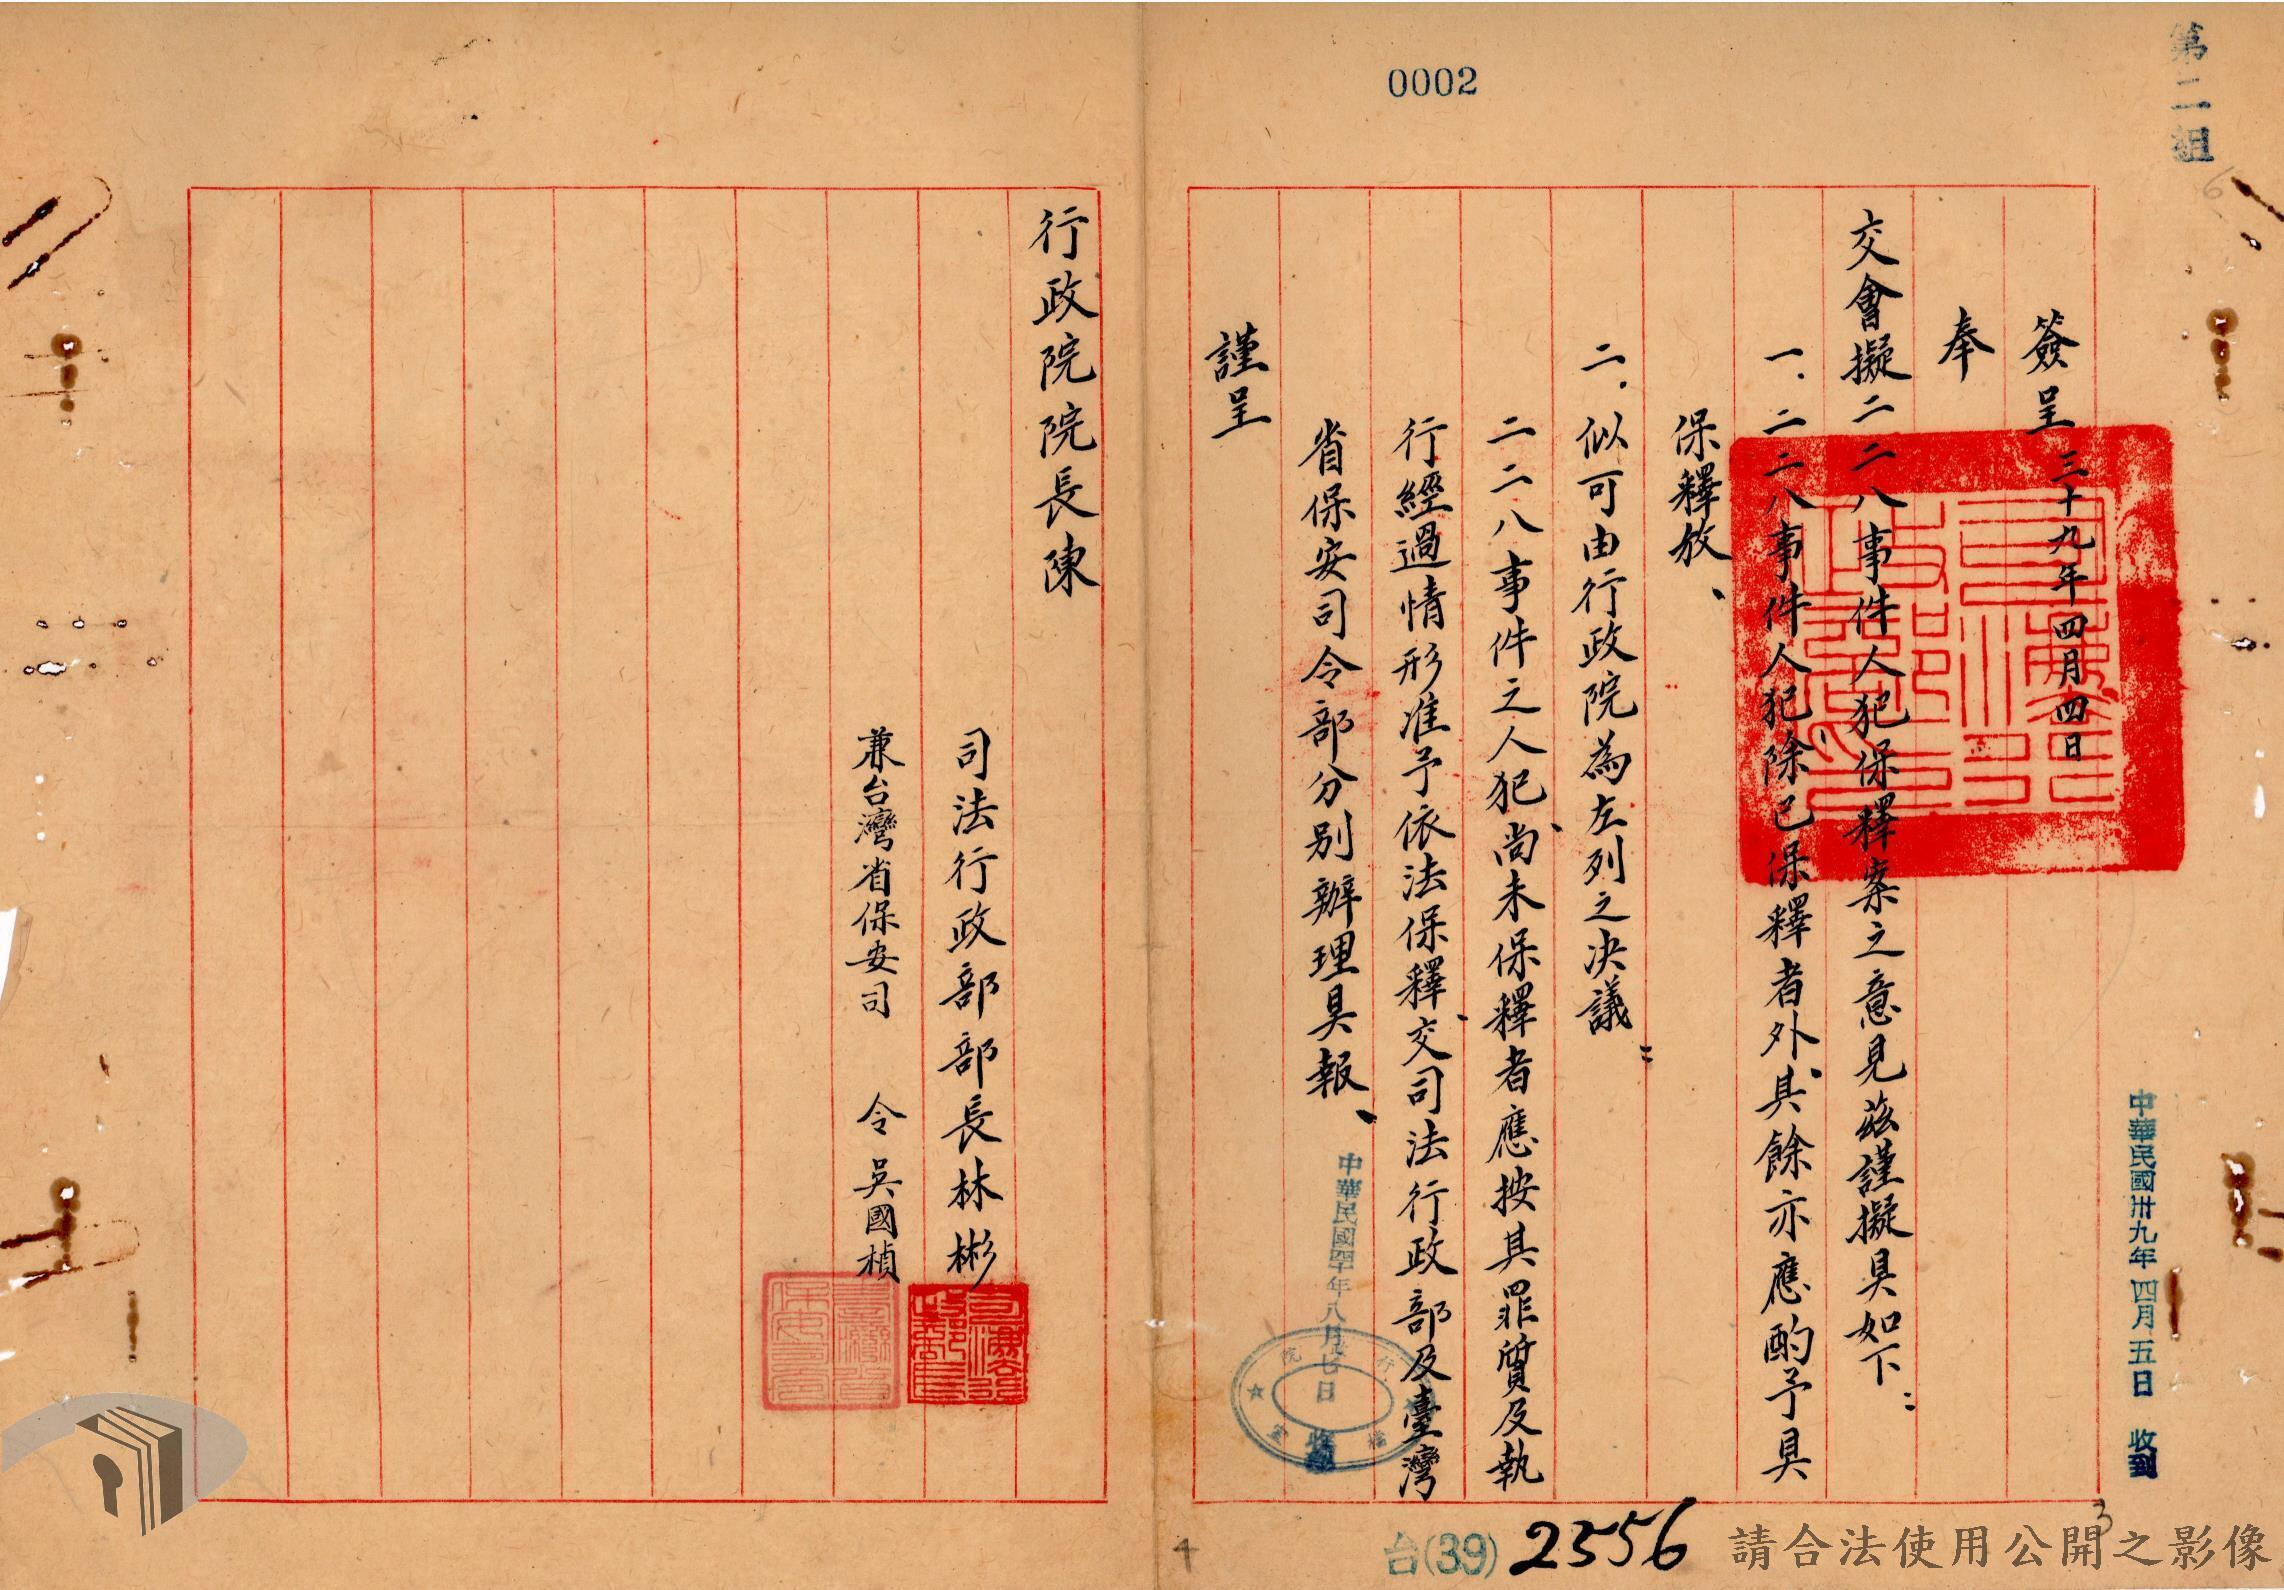 第二組
0002
簽呈 三十九年四月四日
奉
交會擬二二八事件人犯保釋案之意見茲謹擬具如下：
一.二二八事件人犯除已保釋者外、其餘亦應酌予具
保釋放、
二.似可由行政院為左列之决議：
二二八事件之人犯、尚未保釋者應按其罪質及執
行經過情形准予依法保釋、交司法行政部及臺灣
省保安司令部分别辦理具報、
謹呈
行政院院長陳
司法行政部部長林彬
兼台灣省保安司 令 吳國楨
中華民國卅九年四月五日 收到
台(39) 2556
3
4
6
請合法使用公開之影像